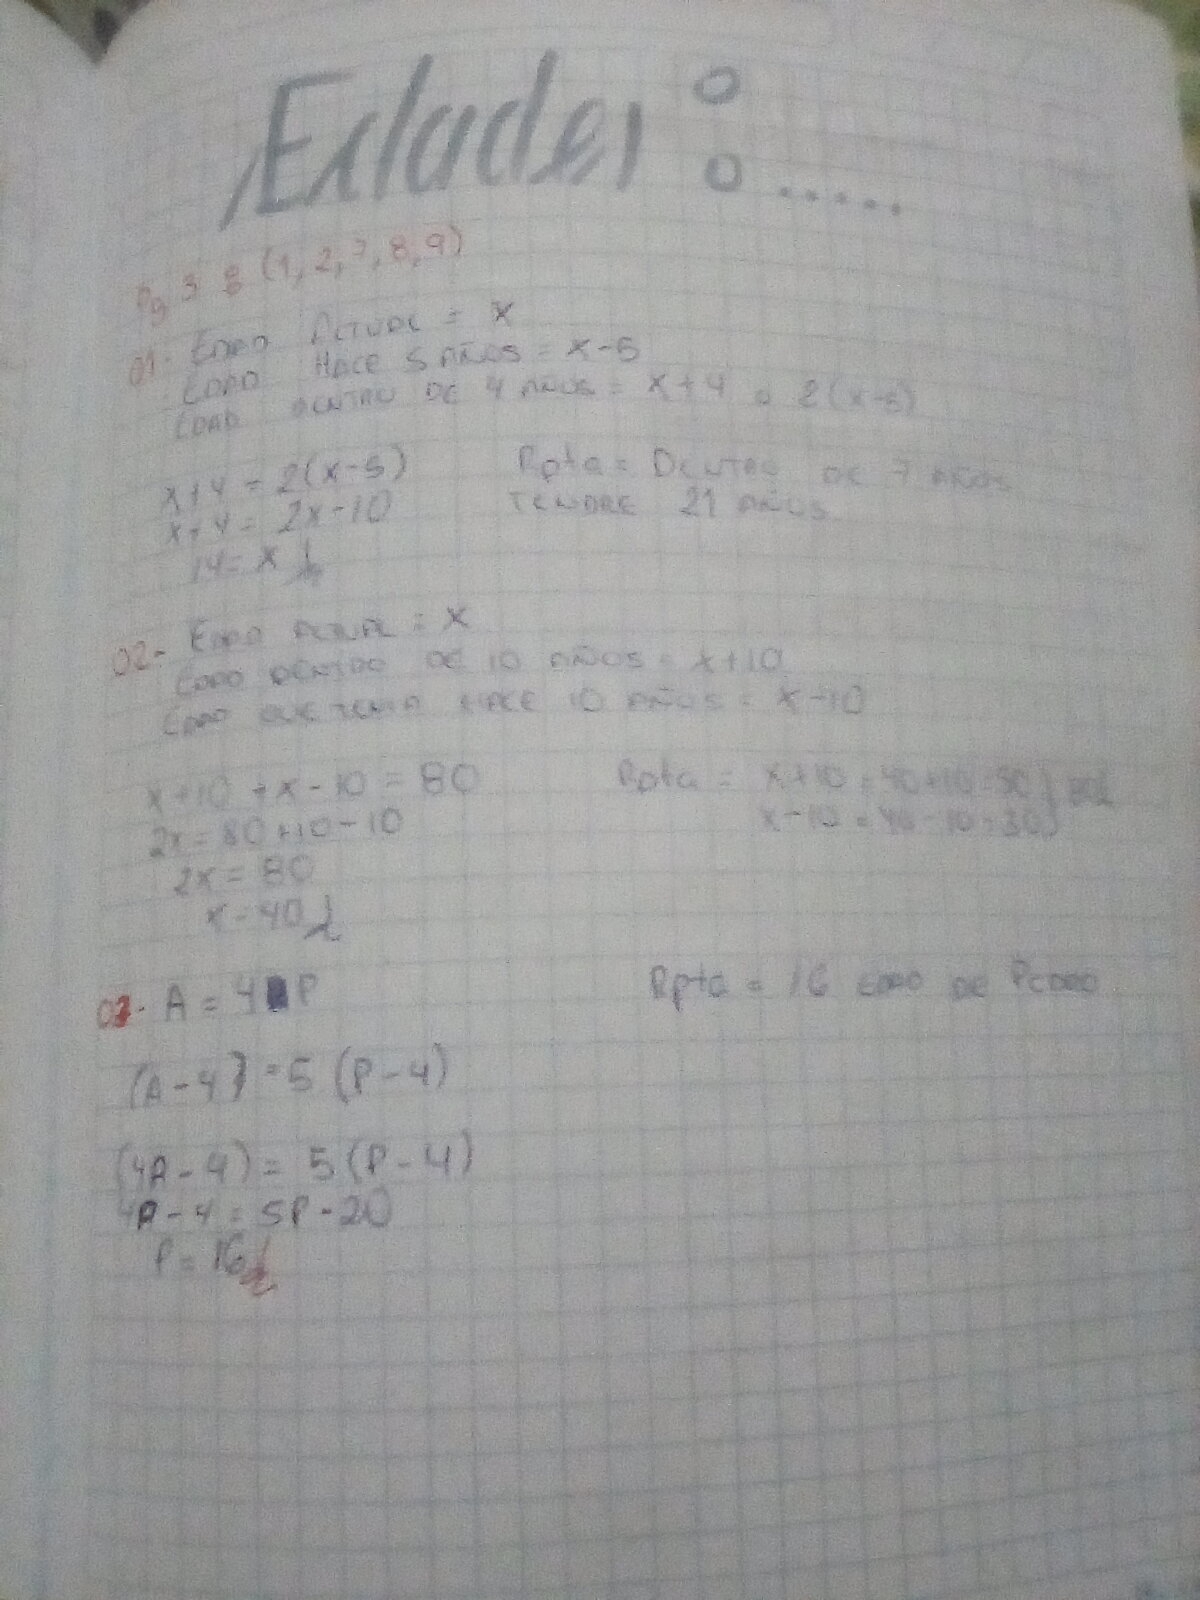 Edades:
:.....
Pg 38 (1, 2, 7, 8, 9)
01- EDAD ACTUAL = X
EDAD HACE 5 AÑOS = X-5
EDAD DENTRO DE 4 AÑOS = X+4 = 2(X-5)
X+4 = 2(X-5)
X+4 = 2X-10
14 = X
Rpta = DENTRO DE 7 AÑOS
TENDRE 21 AÑOS
02- EDAD ACTUAL = X
EDAD DENTRO DE 10 AÑOS = X+10
EDAD QUE TENIA HACE 10 AÑOS = X-10
X+10 + X-10 = 80
2X = 80+10-10
2X = 80
X = 40
Rpta = X+10 = 40+10=50
X-10 = 40-10=30
07- A = 4P
(A-4) = 5 (P-4)
(4P-4) = 5(P-4)
4P-4 = 5P-20
P = 16
Rpta = 16 EDAD DE PEDRO